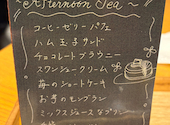 ~Afternoon Tea~
コーヒーゼリーパフェ
ハム玉子サンド
チョコレートブラウニー
スワンシュークリーム
苺のショートケーキ
お芋のモンブラン
ミックスジュースなプリン